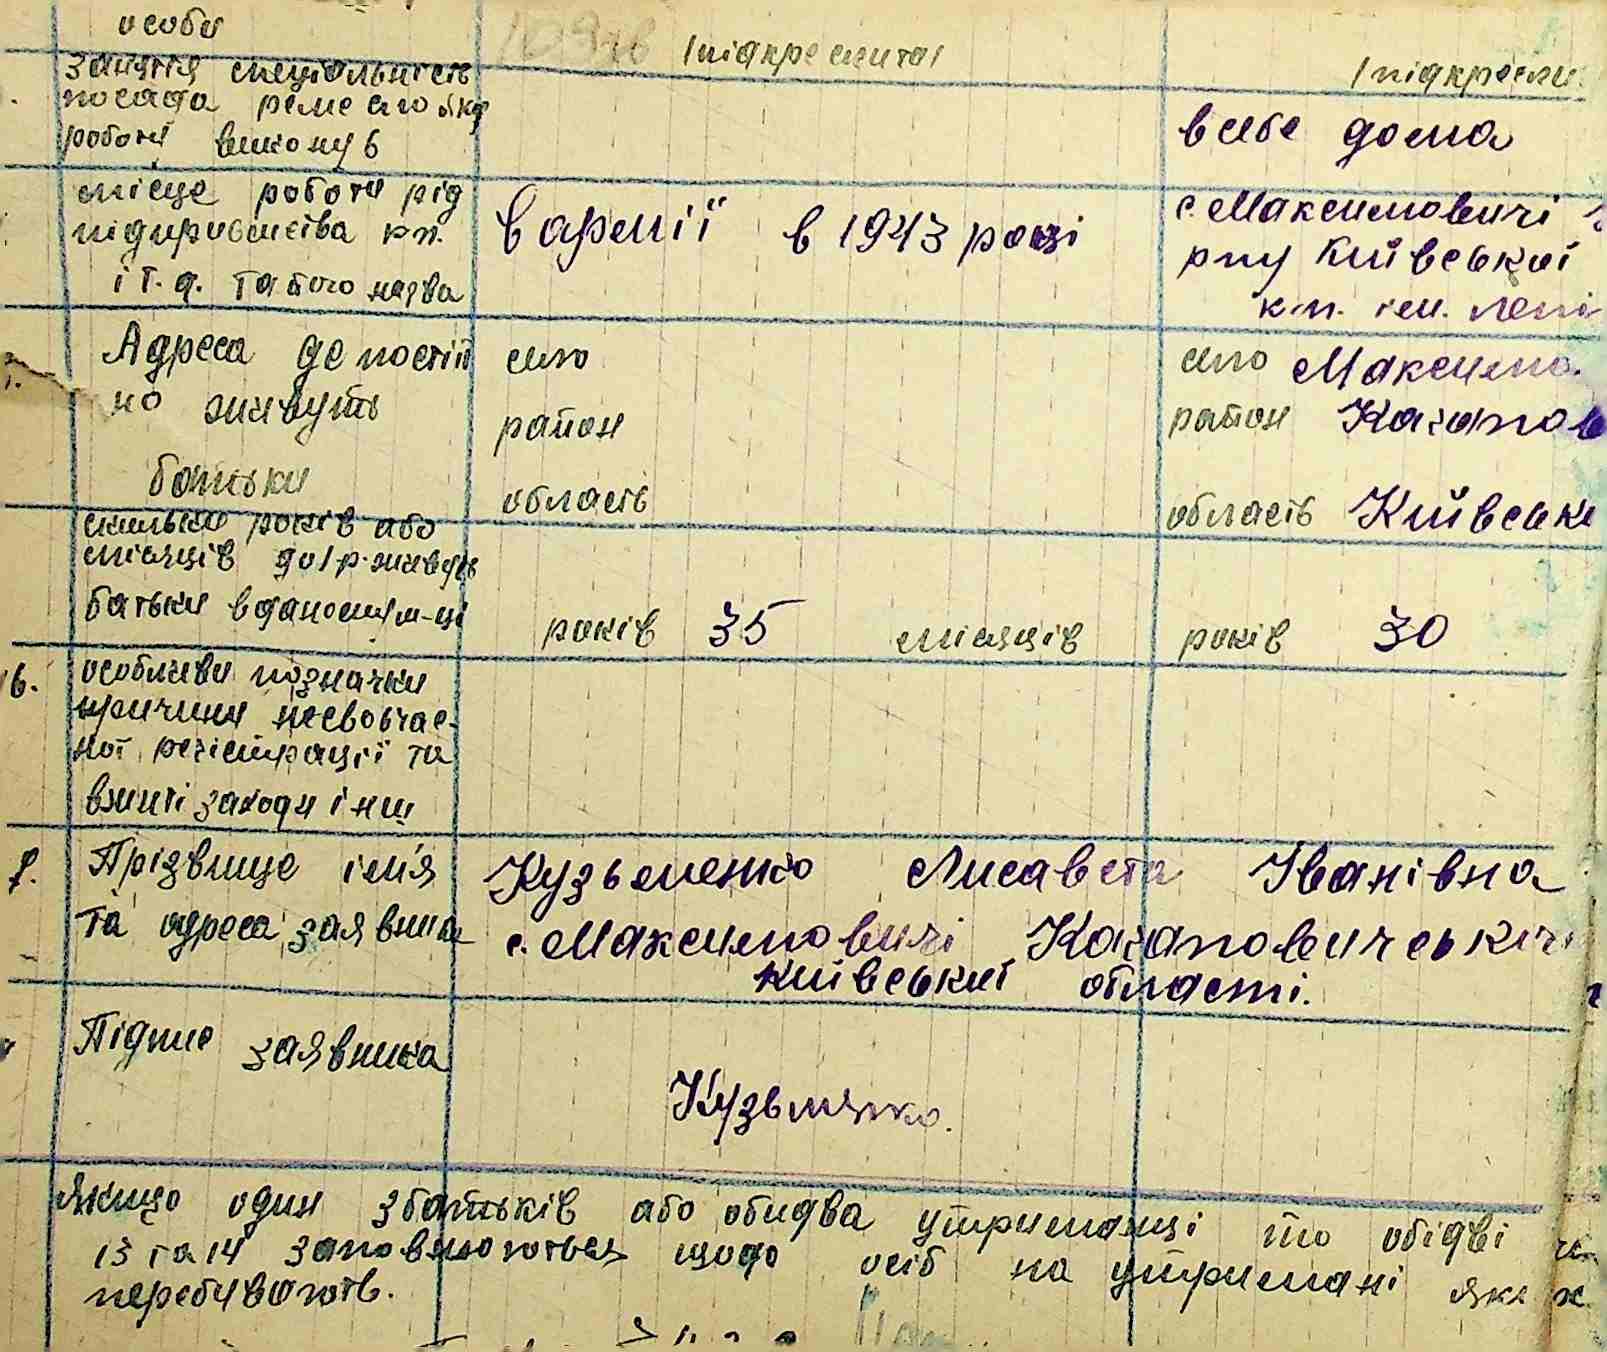 особи
/підкреслити/
/підкресли
заняття спеціальність
посада ремесло яку
роботу виконує
в себе дома
місце роботи рід
підприємства кп.
і т. д. та його назва
в армії в 1943 році
с. Максимовичі
рну Київської
к.п. ім. Лені
Адреса де постій
но живуть
батьки
село
район
область
село Максимо.
район Каганов
область Київськ
скільки років або
місяців до/р. живуть
батьки в даносим м-ці
років 35 місяців
років 30
6.
особливи позначки
причини несвоєчас-
ної регістрації та
вжиті заходи і нш
7.
Прізвище ім'я
та адреса заявника
Кузьменко Лисавета Іванівна
с. Максимовичі Кагановичськ
Київськиї області.
Підпис заявника
Кузьменко.
Якщо один з батьків або обидва утриманці то обідві
13 та 14 заповнюються щодо осіб на утримані яких
перебувають.